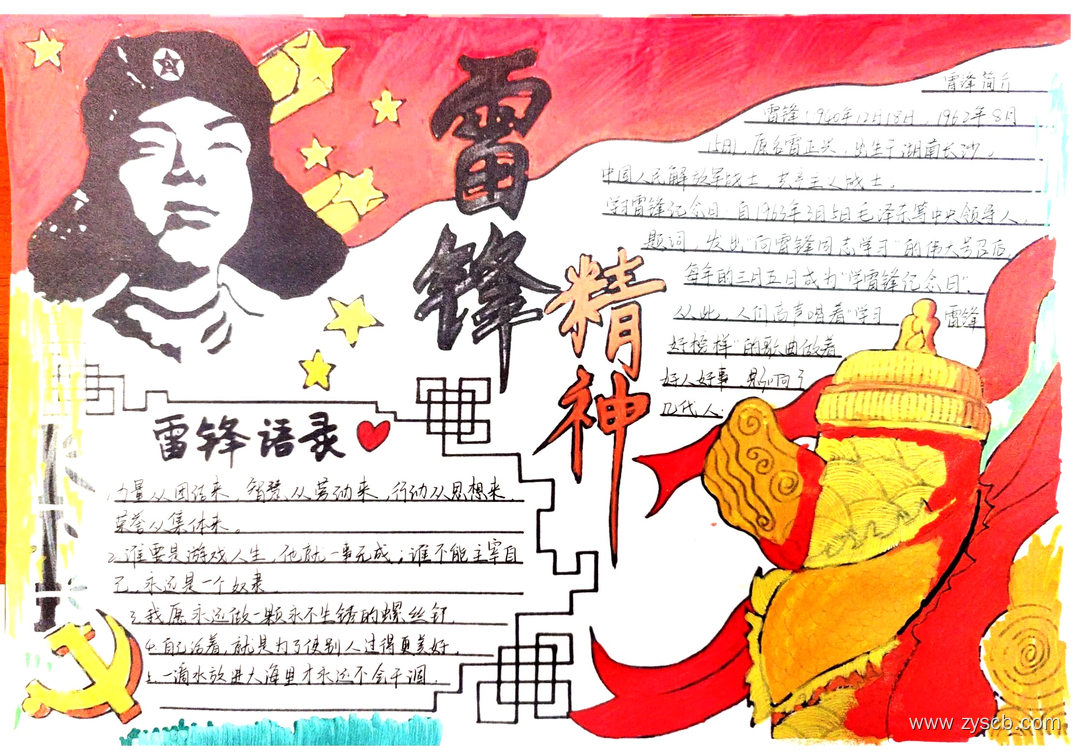 雷锋
精神
雷锋简介
雷锋1940年12月18日,1962年8月
15日,原名雷正兴,出生于湖南长沙。
中国人民解放军战士,共产主义战士。
学习雷锋纪念日 自1963年3月5日毛泽东等中央领导人,
题词,发出"向雷锋同志学习"的伟大号召后,
每年的三月五日成为"学雷锋纪念日".
从此,人们高声唱着"学习 雷锋
好榜样"的歌曲做着
好人好事,影响了
几代人.
雷锋语录
1.力量从团结来,智慧从劳动来,行动从思想来,
荣誉从集体来。
2.谁要是游戏人生,他就一事无成;谁不能主宰自
己,永远是一个奴隶.
3.我愿永远做一颗永不生锈的螺丝钉
4.自己活着,就是为了使别人过得更美好.
5.一滴水放进大海里才永远不会干涸.
www.zyscb.com